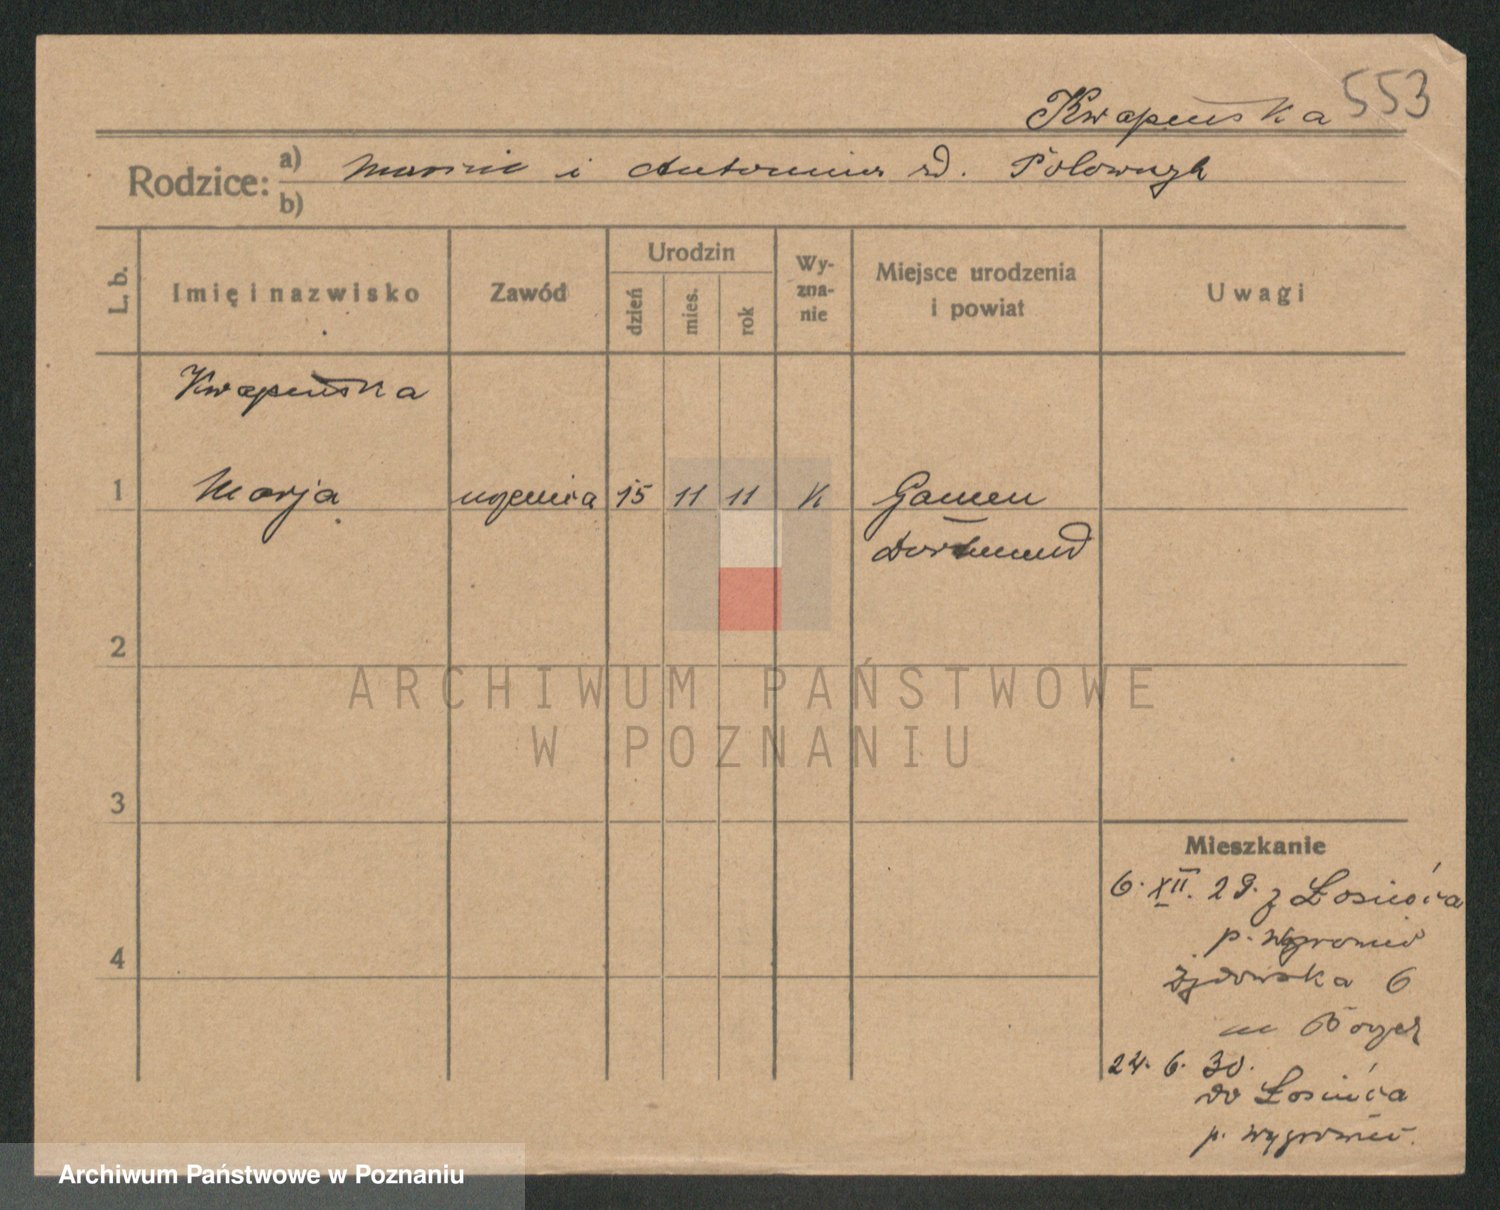 Kwapeńska 553
Rodzice: a) Marcin i Antonina rd. Polowczyk
b)
L. b. Imię i nazwisko Zawód Urodzin dzień mies. rok Wyzna-nie Miejsce urodzenia i powiat Uwagi
Kwapeńska
1 Marja uczenica 15 11 11 K Gamen
Dortmund
2
ARCHIWUM PAŃSTWOWE
W POZNANIU
3
Mieszkanie
6. XII. 29. z Łosińca
p. wągrowiec
4 Żydowska 6
u
24. 6. 30.
do Łosińca
p. wągrowiec
Archiwum Państwowe w Poznaniu